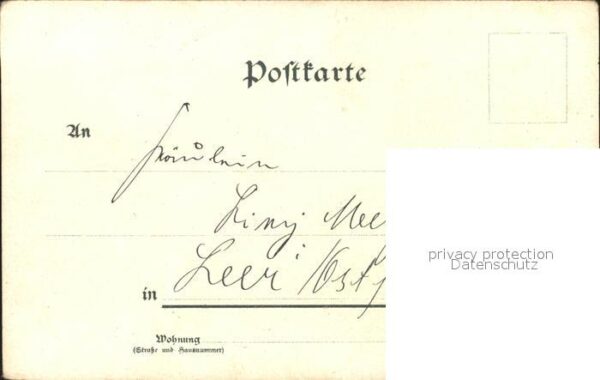 Postkarte
An
Fräulein
Liny Mee
Leer /Ostf
in
Wohnung
(Straße und Hausnummer)
privacy protection
Datenschutz